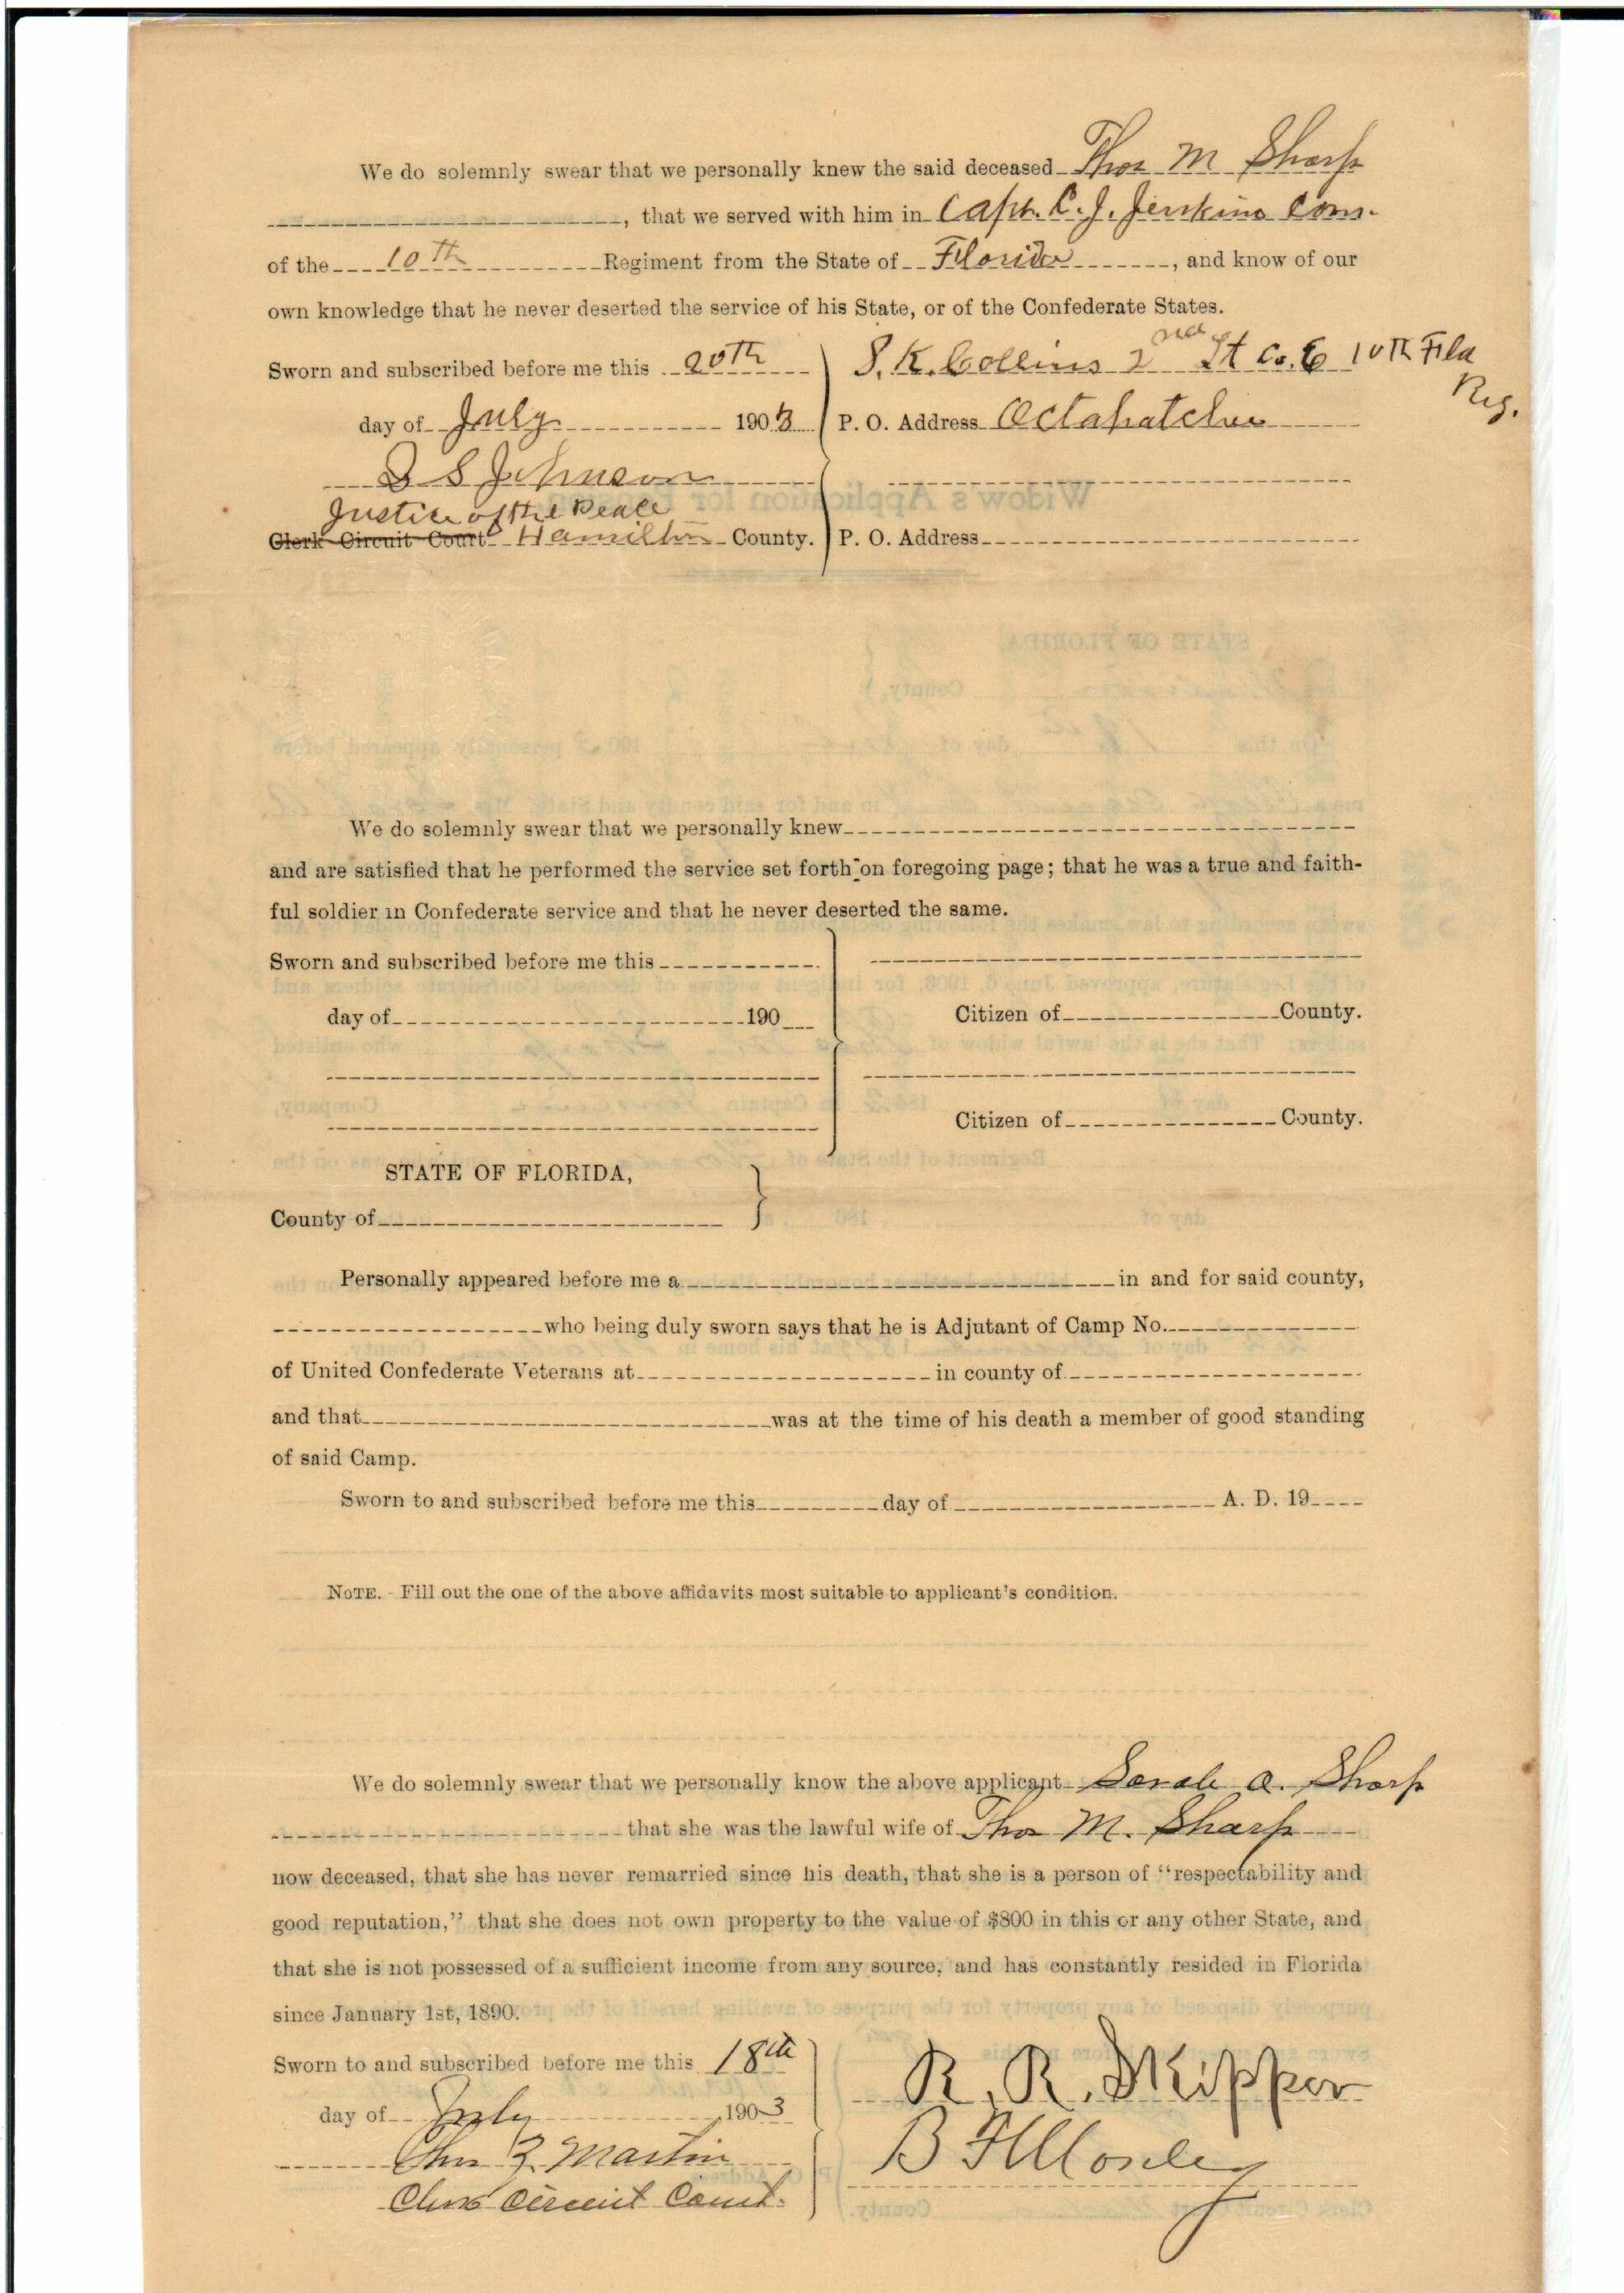 We do solemnly swear that we personally knew the said deceased Thos M Sharp
, that we served with him in Capt. C. J. Jenkins Com.
of the 10th Regiment from the State of Florida, and know of our
own knowledge that he never deserted the service of his State, or of the Confederate States.
Sworn and subscribed before me this 20th
day of July 1903
S Johnson
Justice of the Peace
Clerk Circuit Court Hamilton County.
S. K. Collins 2nd Lt Co. E 10th Fla
Reg.
P. O. Address Octahatchee
P. O. Address
We do solemnly swear that we personally knew
and are satisfied that he performed the service set forth on foregoing page; that he was a true and faith-
ful soldier in Confederate service and that he never deserted the same.
Sworn and subscribed before me this
day of 190
Citizen of County.
Citizen of County.
STATE OF FLORIDA,
County of
Personally appeared before me a in and for said county,
who being duly sworn says that he is Adjutant of Camp No.
of United Confederate Veterans at in county of
and that was at the time of his death a member of good standing
of said Camp.
Sworn to and subscribed before me this day of A. D. 19
NOTE. - Fill out the one of the above affidavits most suitable to applicant's condition.
We do solemnly swear that we personally know the above applicant Sarah A. Sharp
that she was the lawful wife of Thos M. Sharp
now deceased, that she has never remarried since his death, that she is a person of "respectability and
good reputation," that she does not own property to the value of $800 in this or any other State, and
that she is not possessed of a sufficient income from any source, and has constantly resided in Florida
since January 1st, 1890.
Sworn to and subscribed before me this 18th
day of July 1903
Martin
Clerk Circuit Court.
R. R. Skipper
B F Mosley